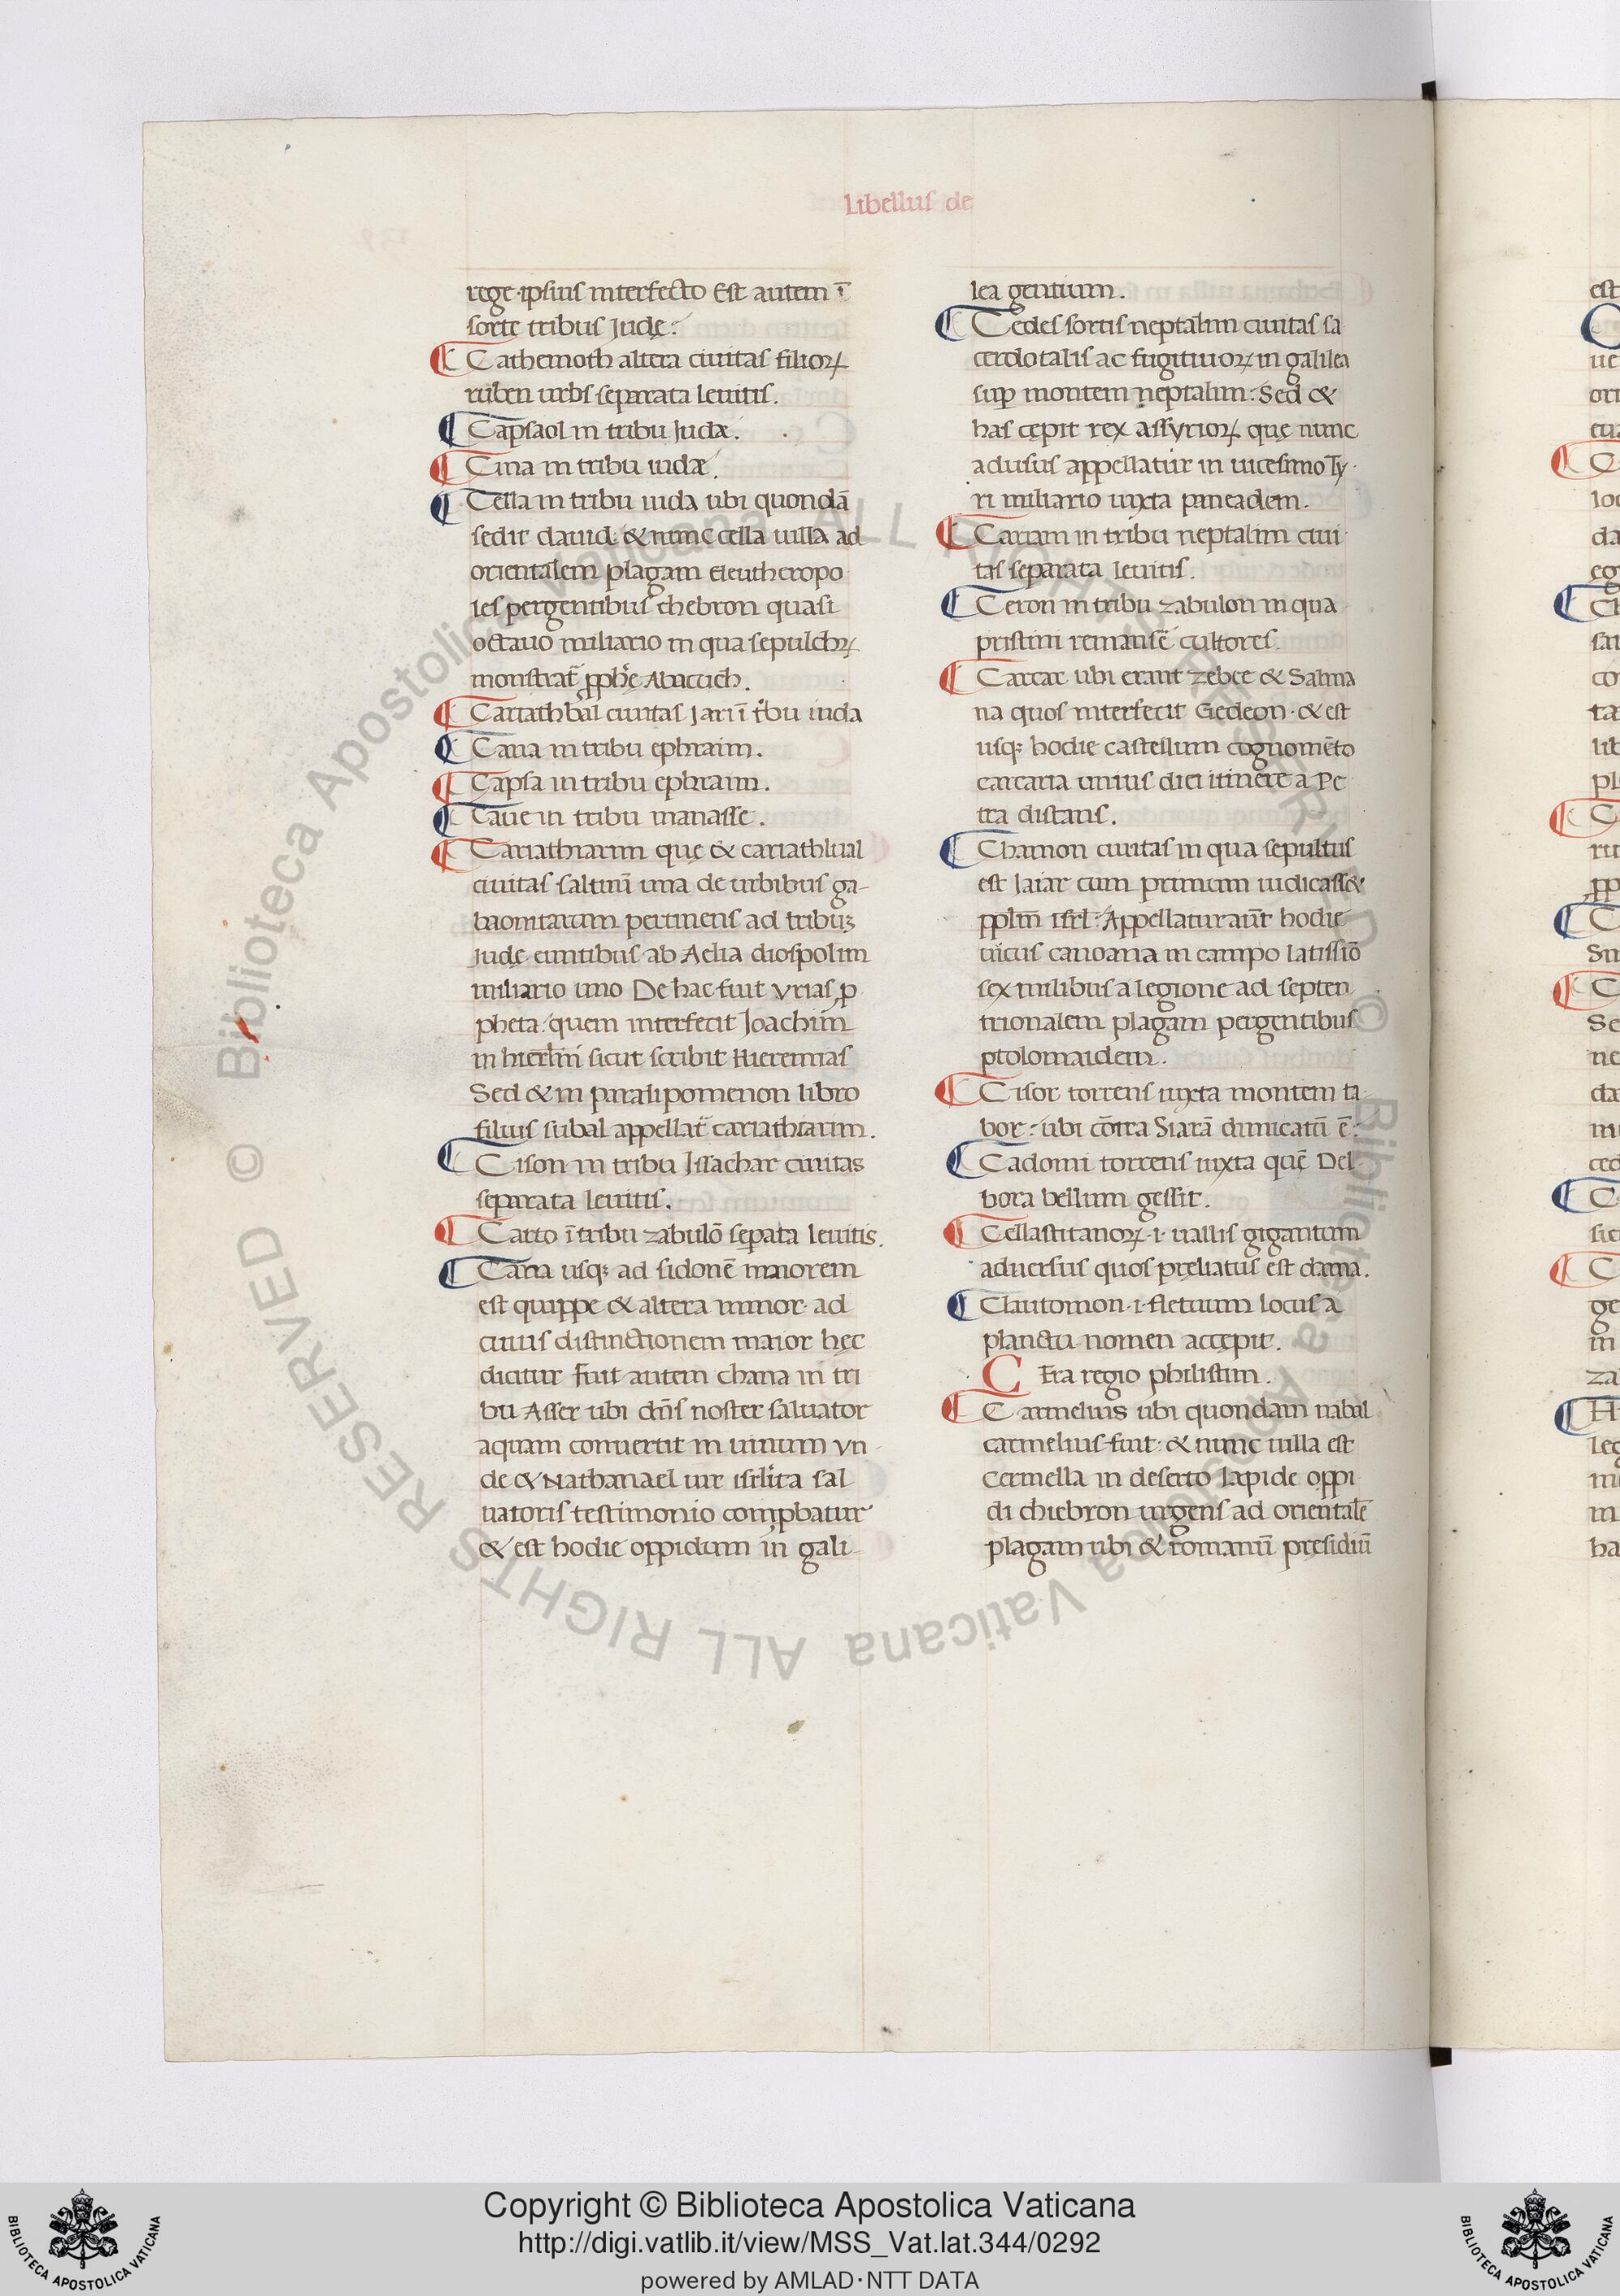 Libellus de
rege ipsius interfecto Est autem ī
sorte tribus Judę:
Cathemoth altera ciuitas filioꝝ
ruben urbs separata leuitis.
Capsaol in tribu Judæ.
Cina in tribu iudæ.
Cella in tribu iuda ubi quondā
sedit dauid: & nunc cella uilla ad
orientalem plagam eleutheropo
les pergentibus chebron quasi
octauo miliario in qua sepulchꝝ
monstrat̄ ꝓphę Abacuch.
Cariathbal ciuitas Jari ī tbu iuda
Cana in tribu ephraim.
Capsa in tribu ephraim.
Caue in tribu manasse.
Cariathiarim quę & cariathbal
ciuitas saltuū una de urbibus ga-
baonitarum pertinens ad tribuꝫ
Judę euntibus ab Aelia diospolim
miliario uno De hac fuit Vrias ꝓ
pheta: quem interfecit Joachim
in hierłm sicut scribit Hieremias
Sed & in paralipomenon libro
filius subal appellat̄ cariathiarim.
Cison in tribu Jssachar ciuitas
separata leuitis.
Carto ī tribu zabulō seꝑata leuitis.
Cana usqꝫ ad sidonē maiorem
est quippe & altera minor ad
cuius distinctionem maior hęc
dicitur Fuit autem chana in tri
bu Asser ubi dn̄s noster saluator
aquam conuertit in uinum vn
de & Nathanael uir isrlita sal
uatoris testimonio comꝓbatur
& est hodie oppidum in gali-
lea gentium.
Cedes sortis neptalim ciuitas sa
cerdotalis ac fugitiuoꝝ in galilea
suꝑ montem neptalim: Sed &
has cępit rex assyrioꝝ quę nunc
adusus appellatur in uicesimo Ty
ri miliario iuxta paneadem.
Cartam in tribu neptalim ciui
tas separata leuitis.
Ceron in tribu zabulon in qua
pristini remansē cultores.
Carcar ubi erant zebee & Salma
na quos interfecit Gedeon & est
usqꝫ hodie castellum cognomēto
carcaria unius diei itinere a Pe
tra distans.
Chamon ciuitas in qua sepultus
est Jaiar cum primum iudicass&
pplm̄ isrl: Appellatur aūt hodie
uicus canoana in campo latissiō
sex milibus a legione ad septen
trionalem plagam pergentibus
ptolomaidem.
Cisor torrens iuxta montem ta
bor: ubi cōtra Siarā dimicatū ē:
Cadomi torrens iuxta quē Del
bora bellum gessit.
Cellastitanoꝝ .i. uallis gigantum
aduersus quos pręliatus est dama.
Clautomon .i. fletuum locus a
planctu nomen accępit.
CEra regio philistim.
Carmelius ubi quondam nabal
carmelius fuit: & nunc uilla est
Cermella in deserto lapide oppi
di chiebron urgens ad orientalē
plagam ubi & romanū pręsidiū
© Biblioteca Apostolica Vaticana ALL RIGHTS RESERVED
© Biblioteca Apostolica Vaticana ALL RIGHTS RESERVED
Copyright © Biblioteca Apostolica Vaticana
http://digi.vatlib.it/view/MSS_Vat.lat.344/0292
powered by AMLAD·NTT DATA
BIBLIOTECA APOSTOLICA VATICANA
BIBLIOTECA APOSTOLICA VATICANA